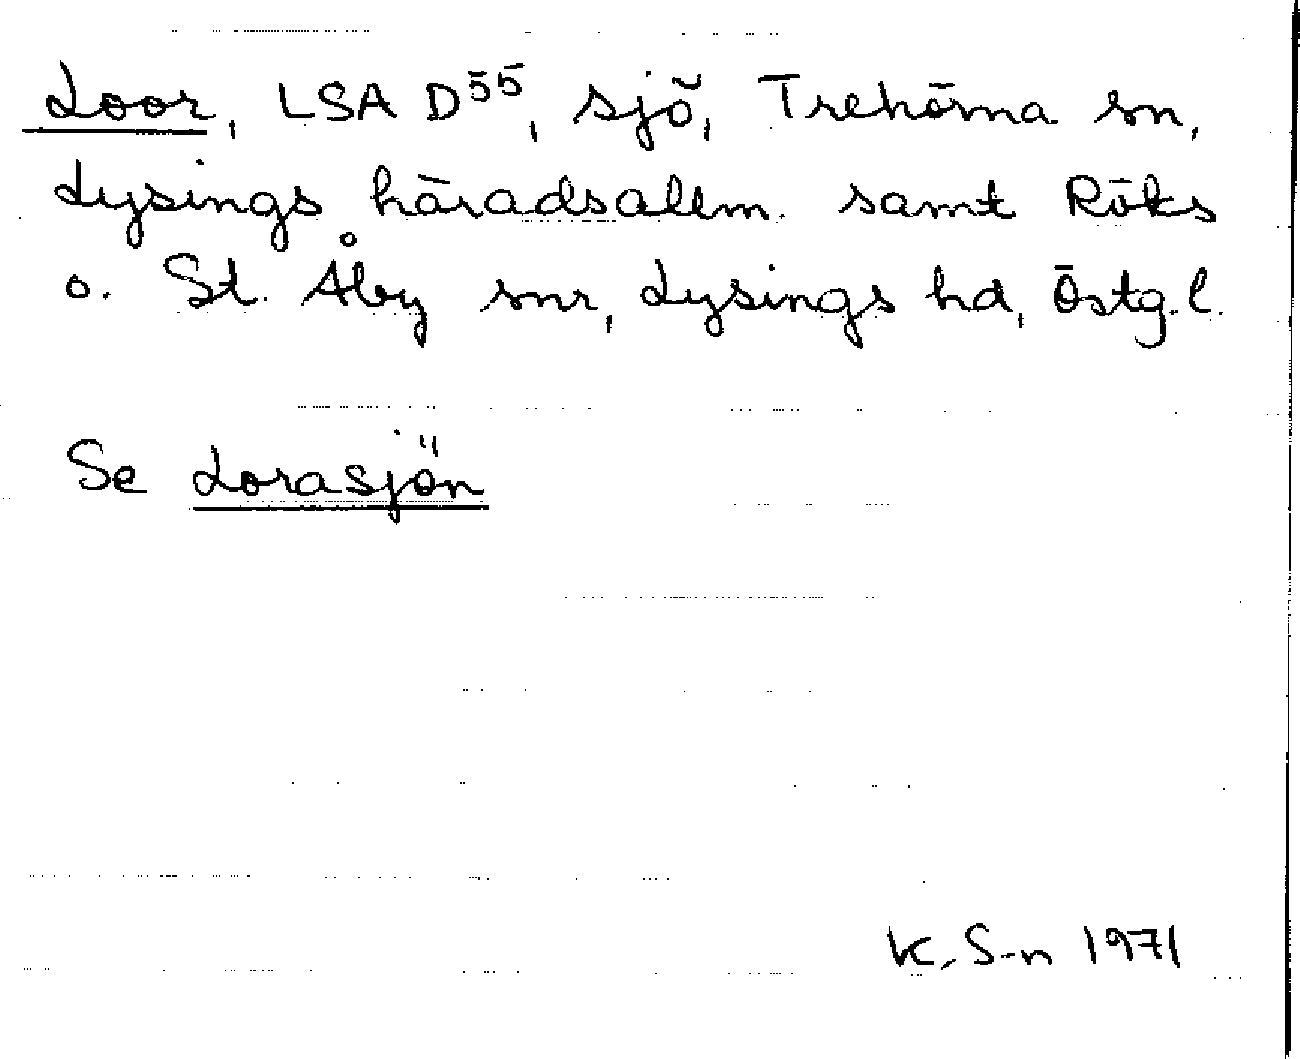 Loor, LSA D55, sjö, Trehörna sn,
Lysings häradsallm. samt Röks
o. St. Åby snr, Lysings hd, Östg.l.
Se Lorasjön
K. S-n 1971